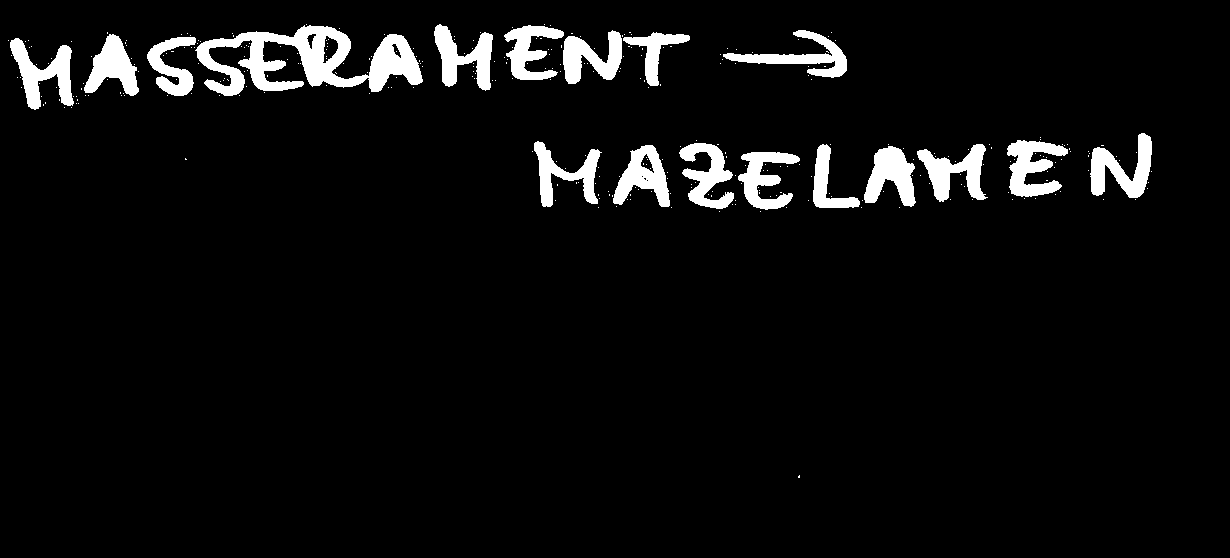 MASSERAMENT →
MAZELAMEN